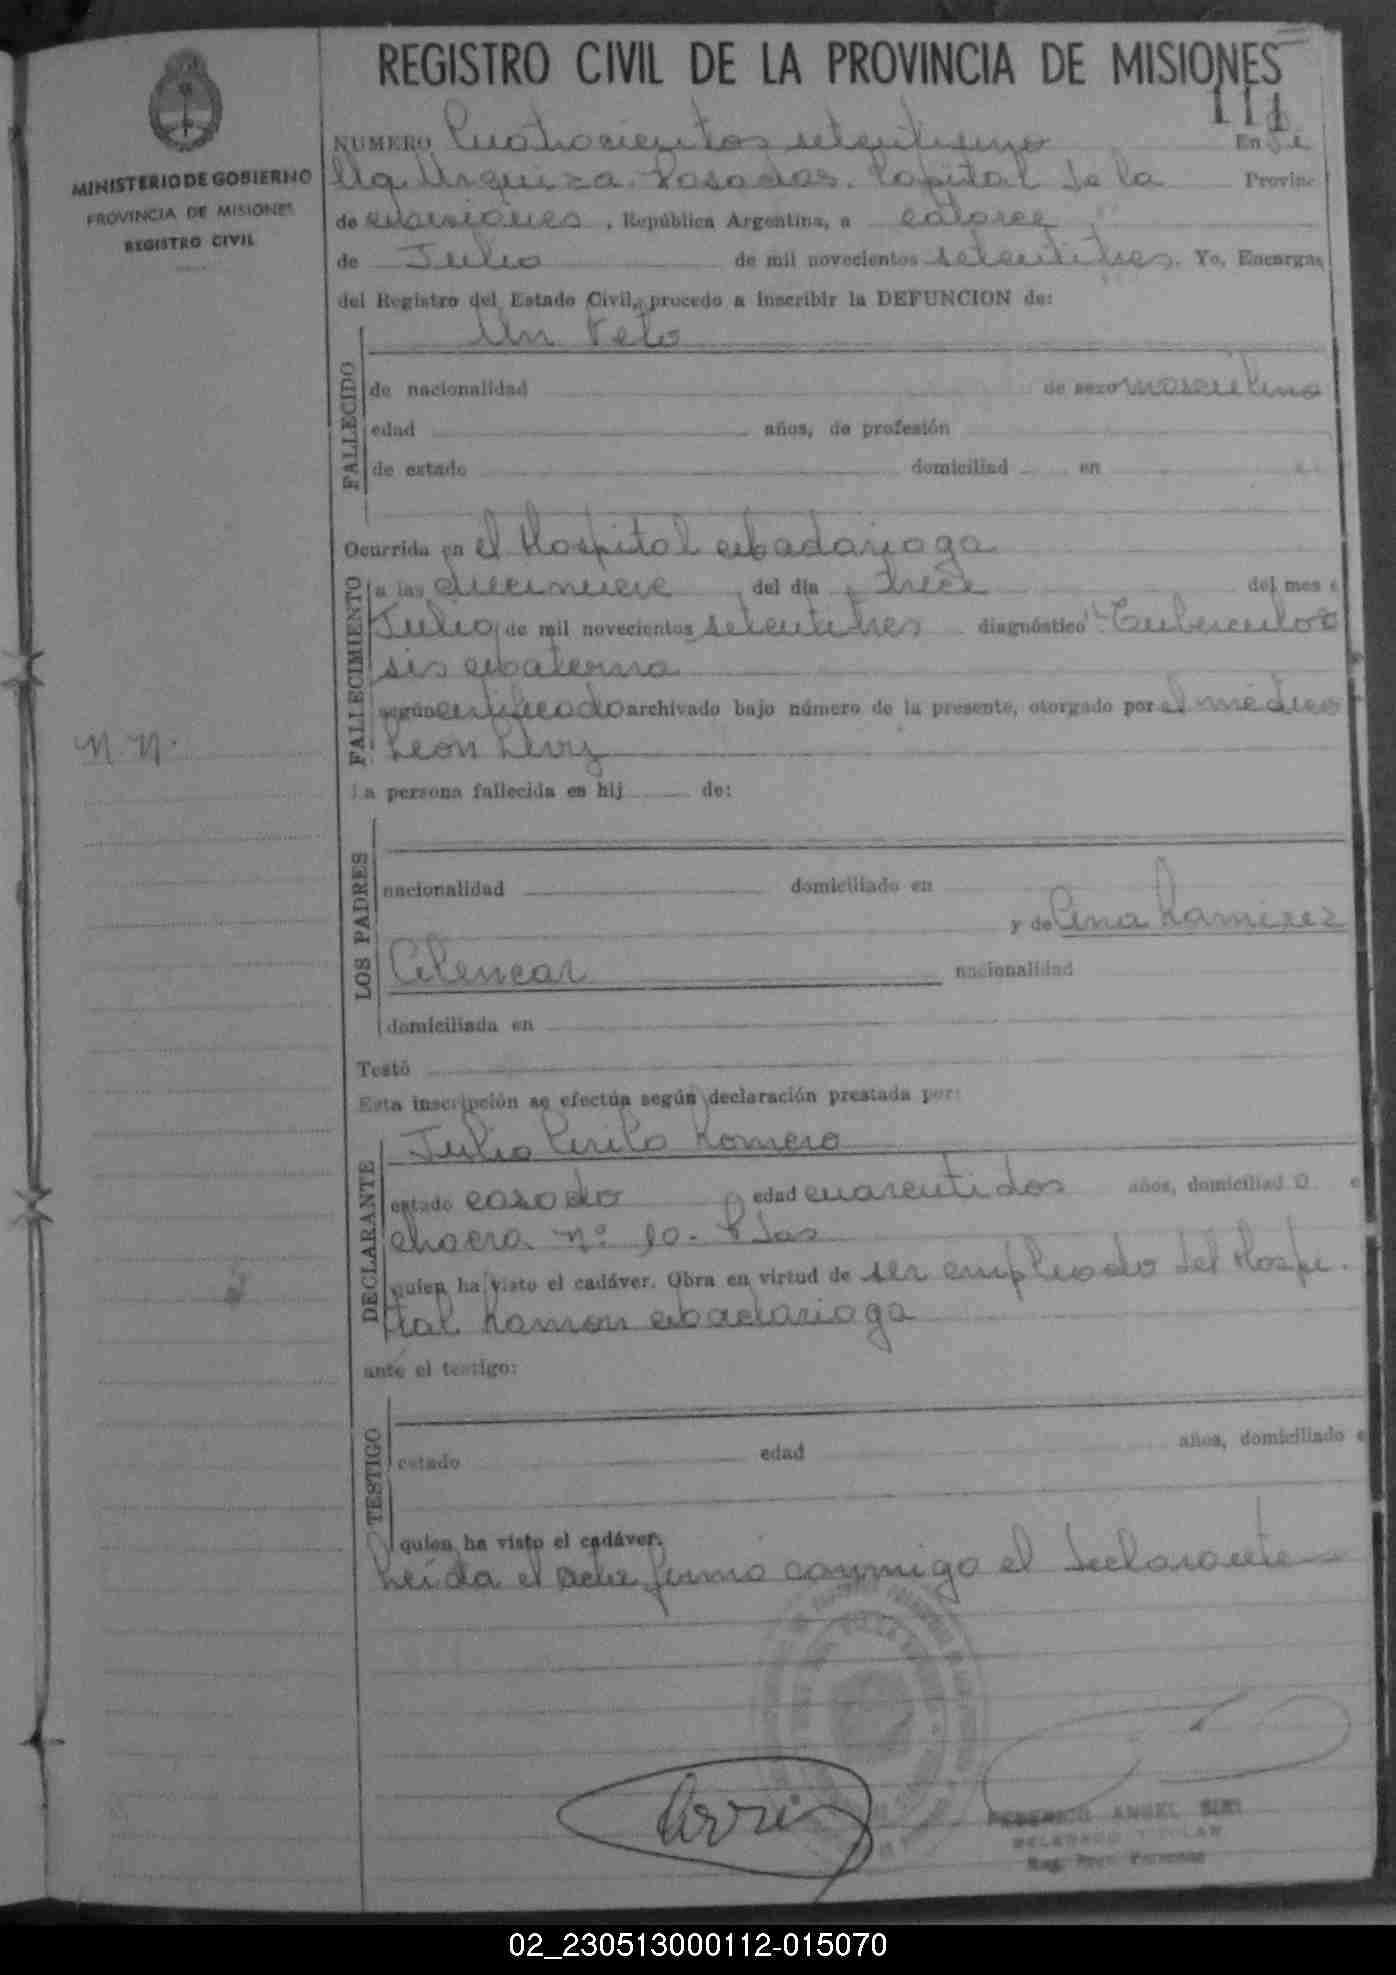 REGISTRO CIVIL DE LA PROVINCIA DE MISIONES
111
MINISTERIO DE GOBIERNO
PROVINCIA DE MISIONES
REGISTRO CIVIL
NUMERO Cuatrocientos setentiuno En
Urquiza. Posadas. Capital de la Provinc
de misiones, República Argentina, a catorce
de Julio de mil novecientos setentitres. Yo, Encarga
del Registro del Estado Civil, procedo a inscribir la DEFUNCION de:
Un Feto
FALLECIDO
de nacionalidad de sexo masculino
edad años, de profesión
de estado domiciliad en
Ocurrida en el Hospital Madariaga
FALLECIMIENTO
a las diecinueve del día trece del mes
Julio de mil novecientos setentitres diagnóstico Tuberculo
sis materna
según certificado archivado bajo número de la presente, otorgado por el médico
Leon Levy
N.N.
La persona fallecida es hij de:
LOS PADRES
nacionalidad domiciliado en
y de Ana Ramirez
Alencar nacionalidad
domiciliada en
Testó
Esta inscripción se efectúa según declaración prestada por:
DECLARANTE
Julio Cirilo Romero
estado casado edad cuarentidos años, domiciliad o e
chacra nº 10. Pdas
quien ha visto el cadáver. Obra en virtud de ser empleado del Hospi
tal Ramon Madariaga
ante el testigo:
TESTIGO
estado edad años, domiciliado e
quien ha visto el cadáver.
Leída el acta firmó conmigo el declarante
FEDERICO ANGEL
DELEGADO TITULAR
Reg. Prov. Personas
02_230513000112-015070